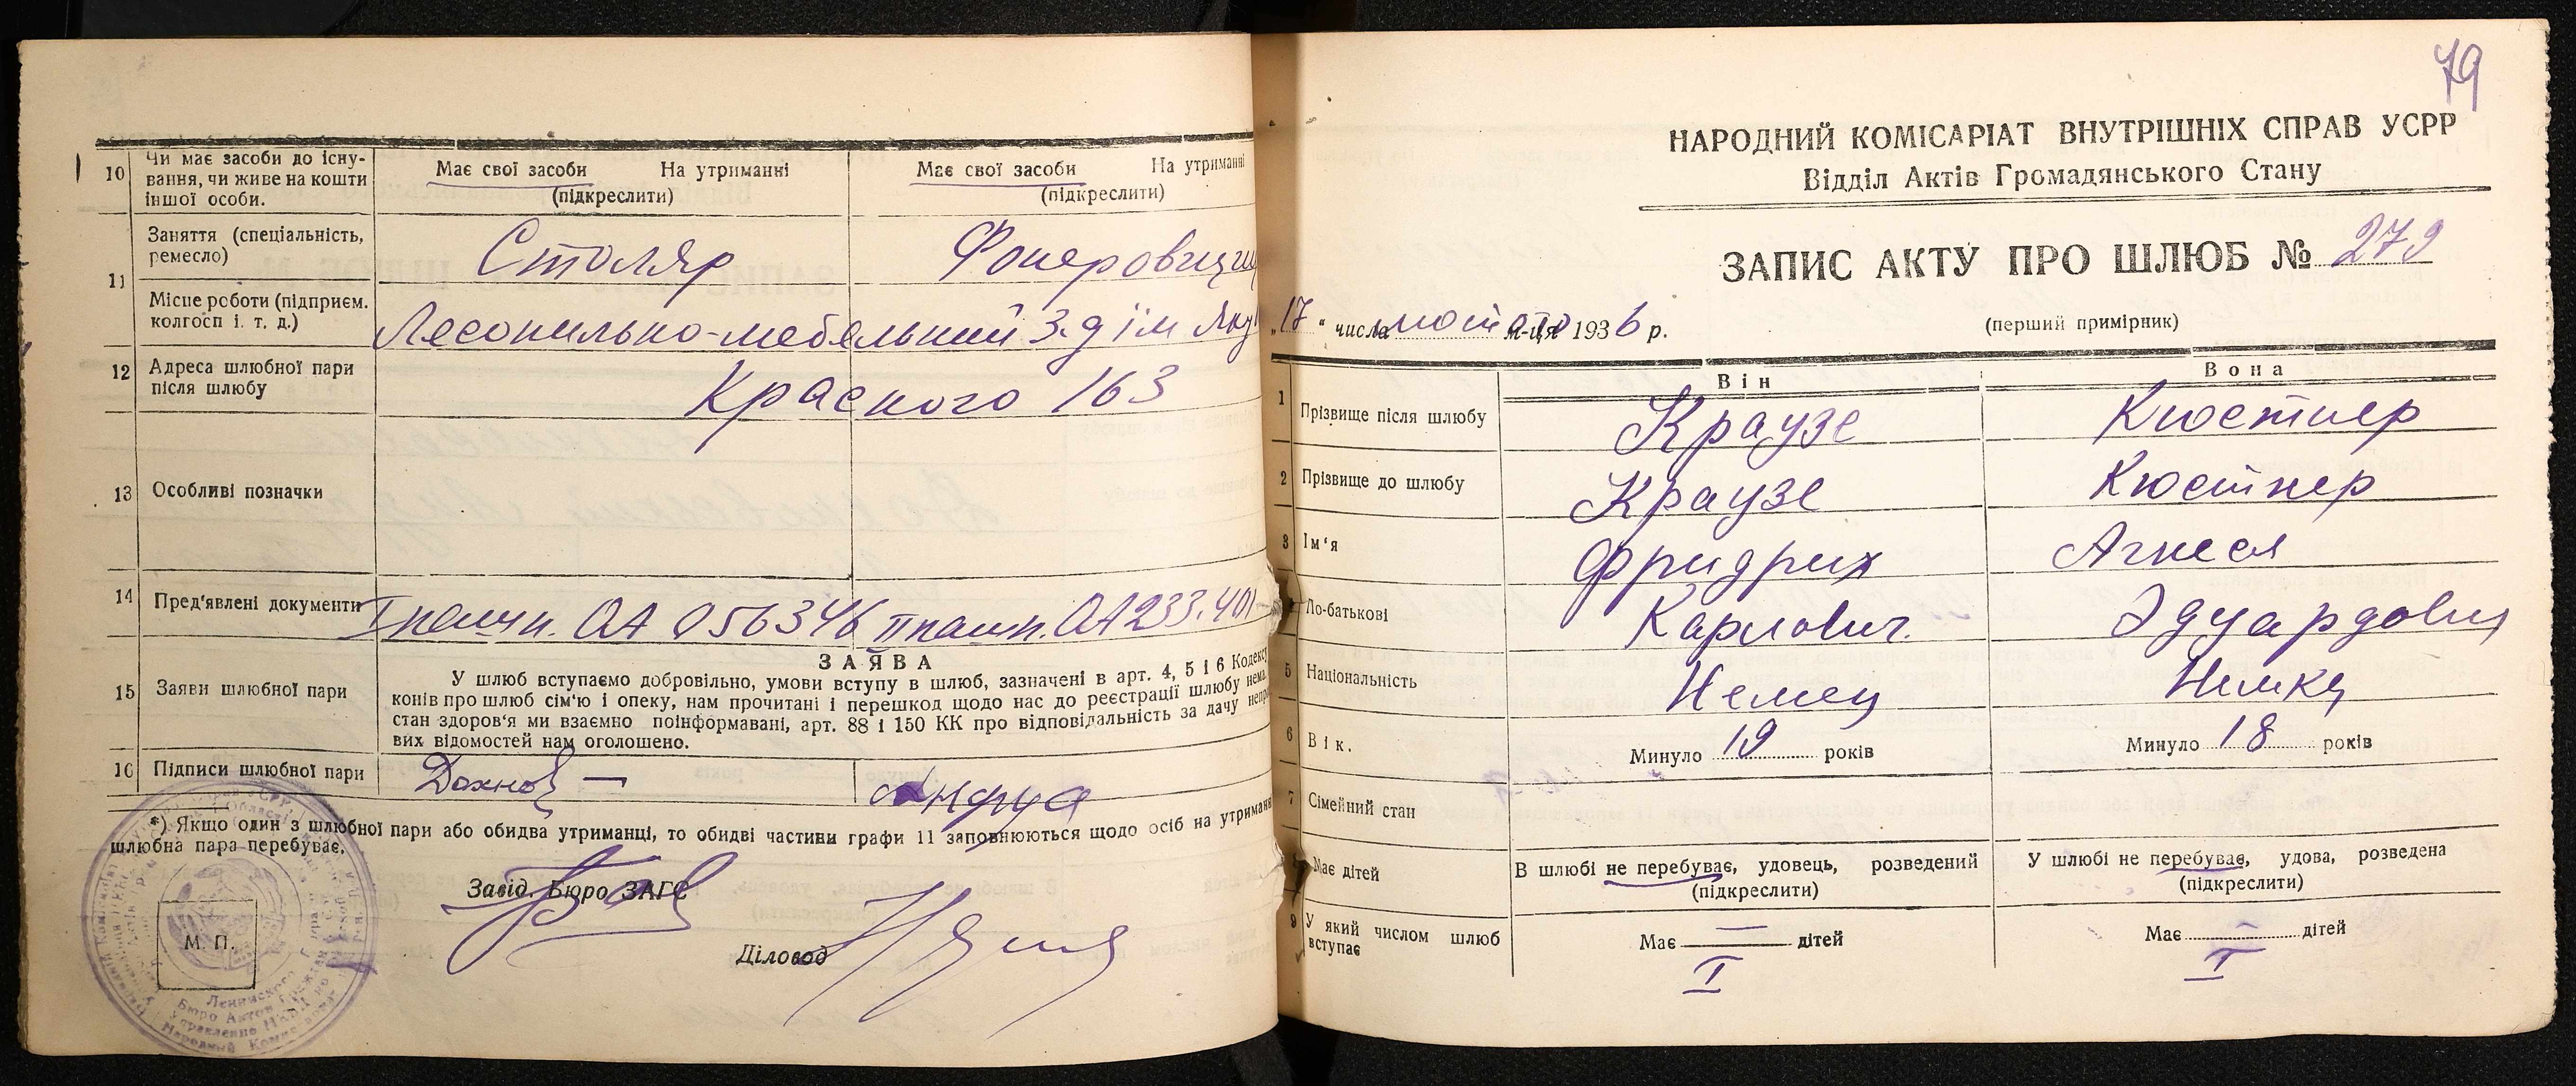 10
Чи має засоби до існу-
вання, чи живе на кошти
іншої особи.
Має свої засоби На утриманні
(підкреслити)
Має свої засоби На утриманні
(підкреслити)
11
Заняття (спеціальність,
ремесло)
Столяр
Фонеровщиц
Місце роботи (підприєм.
колгосп і. т. д.)
Лесопильно-мебельний З-д ім
12
Адреса шлюбної пари
після шлюбу
Красного 163
13
Особливі позначки
14
Пред'явлені документи
І пашп. ОА 056346 ІІ пашп. ОА 233.401
15
Заяви шлюбної пари
ЗАЯВА
У шлюб вступаємо добровільно, умови вступу в шлюб, зазначені в арт. 4, 5 і 6 Кодексу
конів про шлюб сім'ю і опеку, нам прочитані і перешкод щодо нас до реєстрації шлюбу нема.
стан здоров'я ми взаємно поінформавані, арт. 88 і 150 КК про відповідальність за дачу непр
вих відомостей нам оголошено.
16
Підписи шлюбної пари
*) Якщо один з шлюбної пари або обидва утриманці, то обидві частини графи 11 заповнюються щодо осіб на утриманн
шлюбна пара перебуває.
Завід. Бюро ЗАГС
М. П.
Діловод
79
НАРОДНИЙ КОМІСАРІАТ ВНУТРІШНІХ СПРАВ УСРР
Відділ Актів Громадянського Стану
ЗАПИС АКТУ ПРО ШЛЮБ № 279
„17 " числа лютого м-ця 1936 р.
(перший примірник)
Він
Вона
1
Прізвище після шлюбу
Краузе
Кюстнер
2
Прізвище до шлюбу
Краузе
Кюстнер
3
Ім'я
Фридрих
Агнеся
По-батькові
Карлович.
Эдуардовн
5
Національність
Немец
Немка
6
Вік.
Минуло 19 років
Минуло 18 років
7
Сімейний стан
Має дітей
В шлюбі не перебуває, удовець, розведений
(підкреслити)
У шлюбі не перебуває, удова, розведена
(підкреслити)
9
У який числом шлюб
вступає
Має — дітей
Має — дітей
I
I